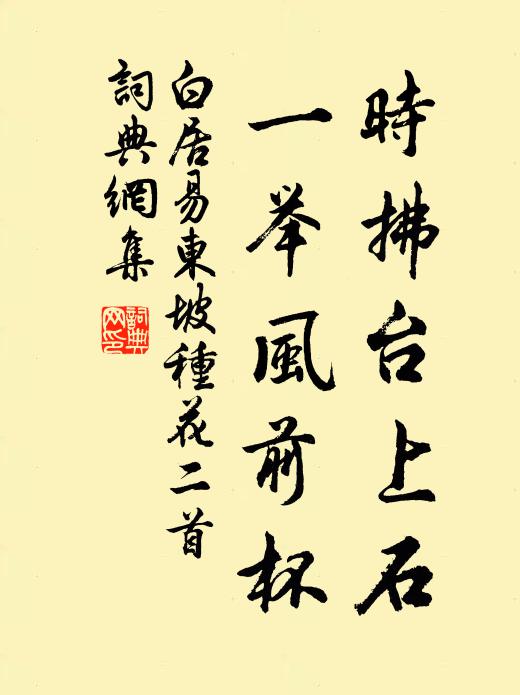 時拂台上石
一举風前杯
白居易東坡種花二首
詞典網集
詞典网印